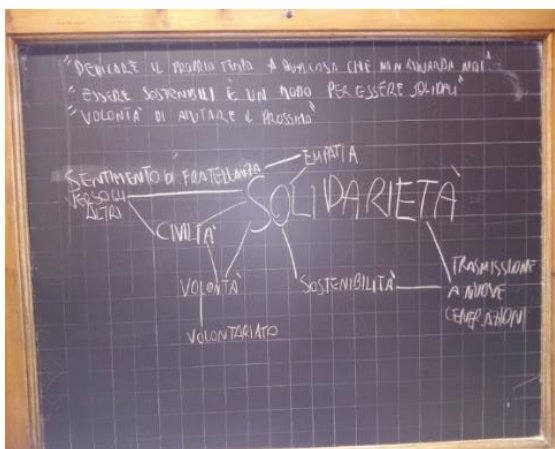 "DEDICARE IL PROPRIO TEMPO A QUALCOSA CHE NON RIGUARDA NOI"
"ESSERE SOSTENIBILI È UN MODO PER ESSERE SOLIDALI"
"VOLONTÀ DI AIUTARE IL PROSSIMO"
EMPATIA
SENTIMENTO DI FRATELLANZA
VERSO GLI
ALTRI
SOLIDARIETÀ
CIVILTÀ
VOLONTÀ
SOSTENIBILITÀ
TRASMISSIONE
A NUOVE
GENERAZIONI
VOLONTARIATO